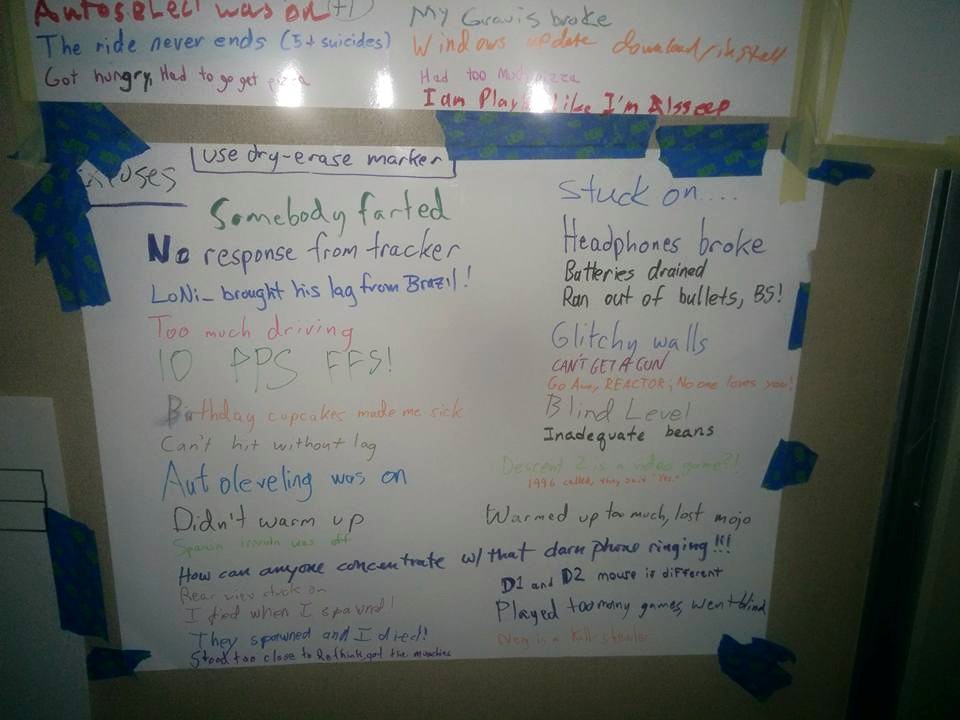 Autoselect was on (+1)
The ride never ends (5+ suicides)
Got hungry, Had to go get pizza
My Gravis broke
Windows update download/install
Had too much pizza
I am Playing Like I'm Alsseep
Excuses
use dry-erase marker
Somebody farted
No response from tracker
LoNi_ brought his lag from Brazil!
Too much driving
10 PPS FFS!
Birthday cupcakes made me sick
Can't hit without lag
Autoleveling was on
Didn't warm up
Spawn was off
How can anyone concentrate w/ that darn phone ringing!!!
Rear view stuck on
I died when I spawnd!
They spawned and I died!
Stood too close to Rethink, got the munchies
Stuck on....
Headphones broke
Batteries drained
Ran out of bullets, BS!
Glitchy walls
CAN'T GET A GUN
Go Away, REACTOR; No one loves you!
Blind Level
Inadequate beans
Descent 2 is a video game?!
1996 called, they said "Yes."
Warmed up too much, lost mojo
D1 and D2 mouse is different
Played too many games, went blind
is a kill stealer